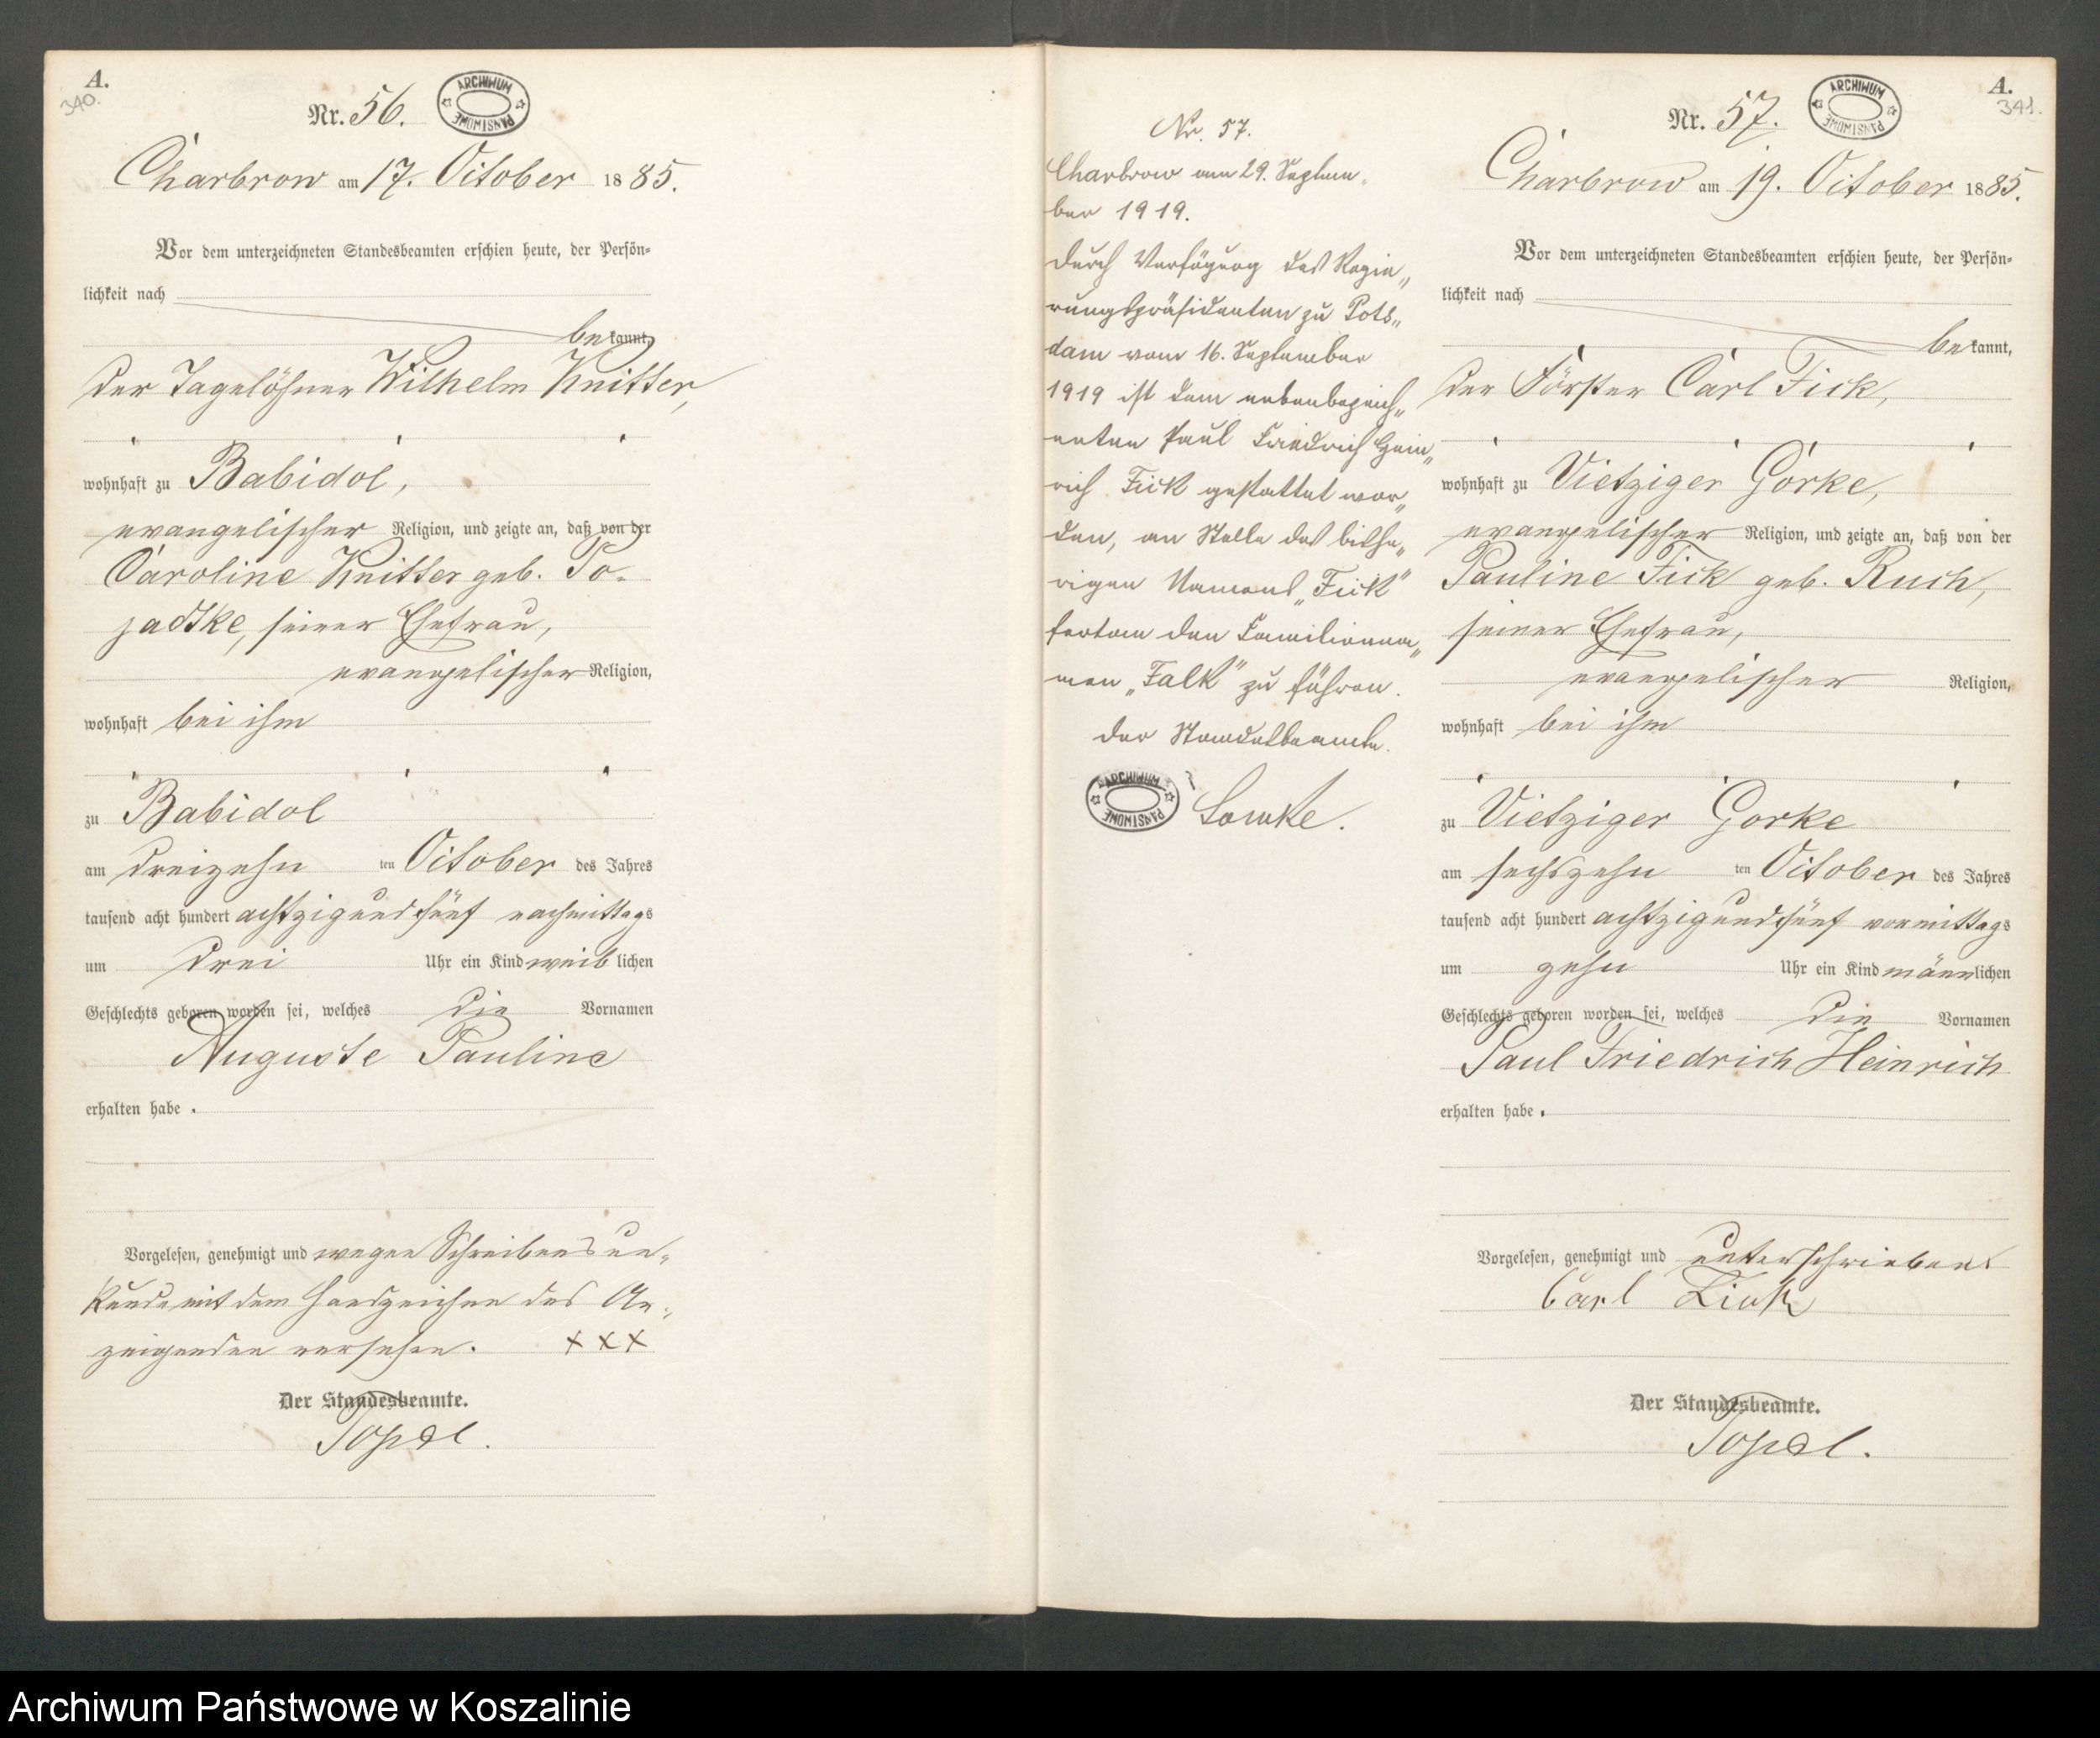 A.
340.
Nr. 56.
ARCHIWUM PAŃSTWOWE
Charbrow am 17. October 1885.
Vor dem unterzeichneten Standesbeamten erschien heute, der Persön-
lichkeit nach
bekannt,
der Tagelöhner Wilhelm Knitter,
wohnhaft zu Babidol,
evangelischer Religion, und zeigte an, daß von der
Caroline Knitter geb. Po-
jadtke, seiner Ehefrau,
evangelischer Religion,
wohnhaft bei ihm
zu Babidol
am dreizehn ten October des Jahres
tausend acht hundert achtzigundfünf nachmittags
um drei Uhr ein Kind weiblichen
Geschlechts geboren worden sei, welches die Vornamen
Auguste Pauline
erhalten habe.
Vorgelesen, genehmigt und wegen Schreibensun-
kunde mit dem Handzeichen des An-
zeigenden versehen. xxx
Der Standesbeamte.
Nr. 57.
Charbrow am 29. Septem-
ber 1919.
Durch Verfügung des Regie-
rungspräsidenten zu Pots-
dam vom 16. September
1919 ist dem nebenbezeich-
neten Paul Friedrich Hein-
rich Fick gestattet wor-
den, an Stelle des bishe-
rigen Namens „Fick"
fortan den Familienna-
men „Falk" zu führen.
Der Standesbeamte.
ARCHIWUM PAŃSTWOWE
A.
341.
Nr. 57.
ARCHIWUM PAŃSTWOWE
Charbrow am 19. October 1885.
Vor dem unterzeichneten Standesbeamten erschien heute, der Persön-
lichkeit nach
bekannt,
der Förster Carl Fick,
wohnhaft zu Vietziger Gorke,
evangelischer Religion, und zeigte an, daß von der
Pauline Fick geb. Ruch,
seiner Ehefrau,
evangelischer Religion,
wohnhaft bei ihm
zu Vietziger Gorke
am sechszehn ten October des Jahres
tausend acht hundert achtzigundfünf vormittags
um zehn Uhr ein Kind männlichen
Geschlechts geboren worden sei, welches die Vornamen
Paul Friedrich Heinrich
erhalten habe.
Vorgelesen, genehmigt und unterschrieben
Carl Fick
Der Standesbeamte.
Archiwum Państwowe w Koszalinie